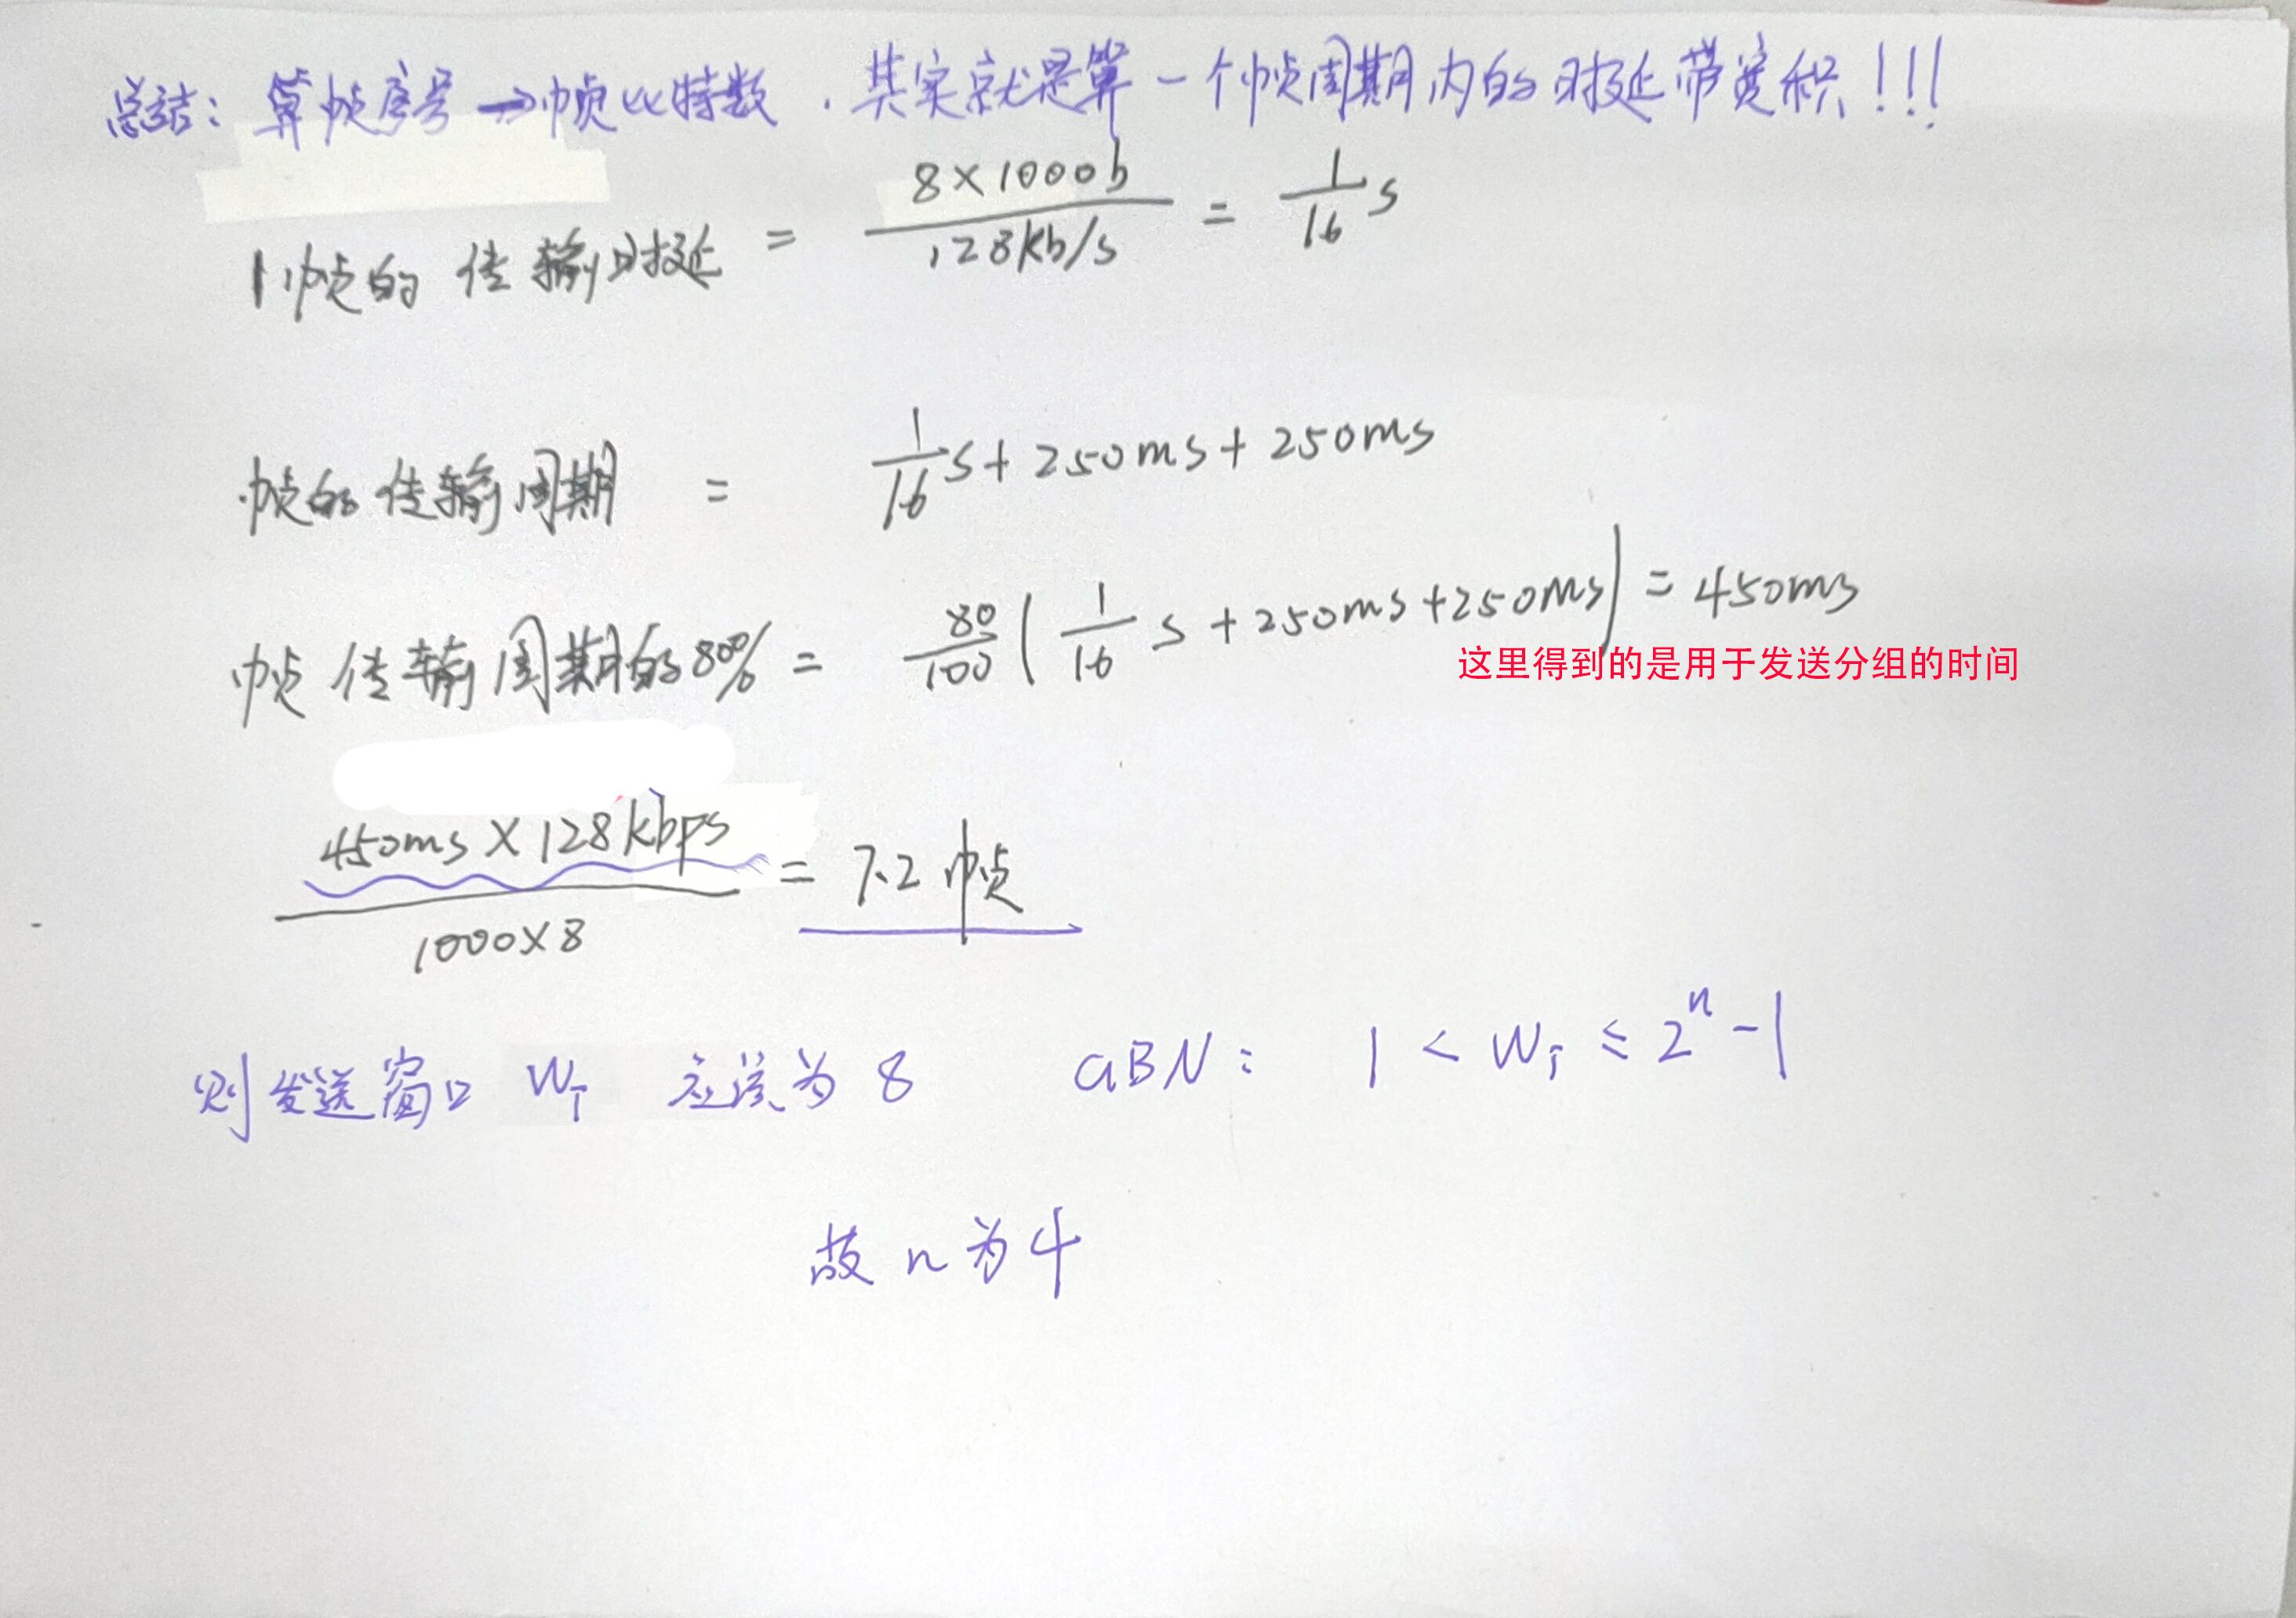 总结：算帧序号→帧比特数，其实就是算一个帧周期内的时延带宽积！！！
1帧的传输时延 = 8×1000b / 128kb/s = 1/16 s
帧的传输周期 = 1/16 s + 250ms + 250ms
帧传输周期的80% = 80/100 ( 1/16 s + 250ms + 250ms ) = 450ms
这里得到的是用于发送分组的时间
450ms × 128kbps / 1000×8 = 7.2帧
则发送窗口 W_T 应该为 8 GBN： 1 < W_T ≤ 2^n - 1
故 n 为 4